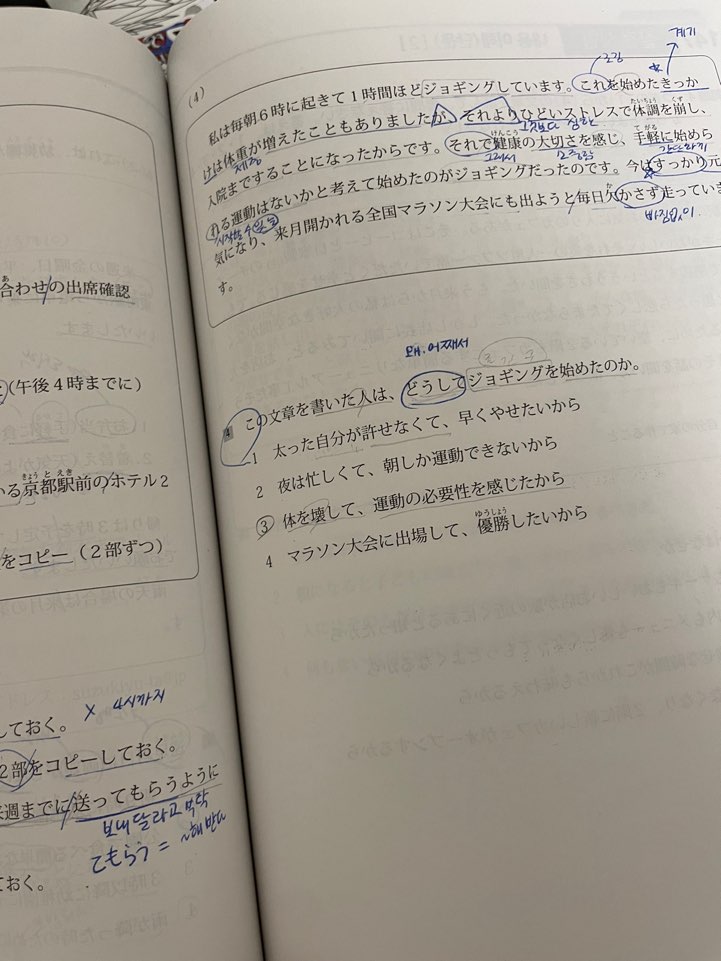 合わせの出席確認
(午後4時までに)
いる京都駅前のホテル2
をコピー(2部ずつ)
しておく。 × 4시까지
2部をコピーしておく。
来週までに送ってもらうように
보내달라고 부탁
てもらう = ~해받다
ておく。
(4)
계기
조깅
私は毎朝6時に起きて1時間ほどジョギングしています。これを始めたきっか
けは体重が増えたこともありましたが、それよりひどいストレスで体調を崩し、
체중 그것보다 심한
入院まですることになったからです。それで健康の大切さを感じ、手軽に始めら
그래서
れる運動はないかと考えて始めたのがジョギングだったのです。今はすっかり元
気になり、来月開かれる全国マラソン大会にも出ようと毎日欠かさず走っていま
빠짐없이
す。
왜. 어째서
この文章を書いた人は、どうしてジョギングを始めたのか。
1 太った自分が許せなくて、早くやせたいから
2 夜は忙しくて、朝しか運動できないから
3 体を壊して、運動の必要性を感じたから
4 マラソン大会に出場して、優勝したいから